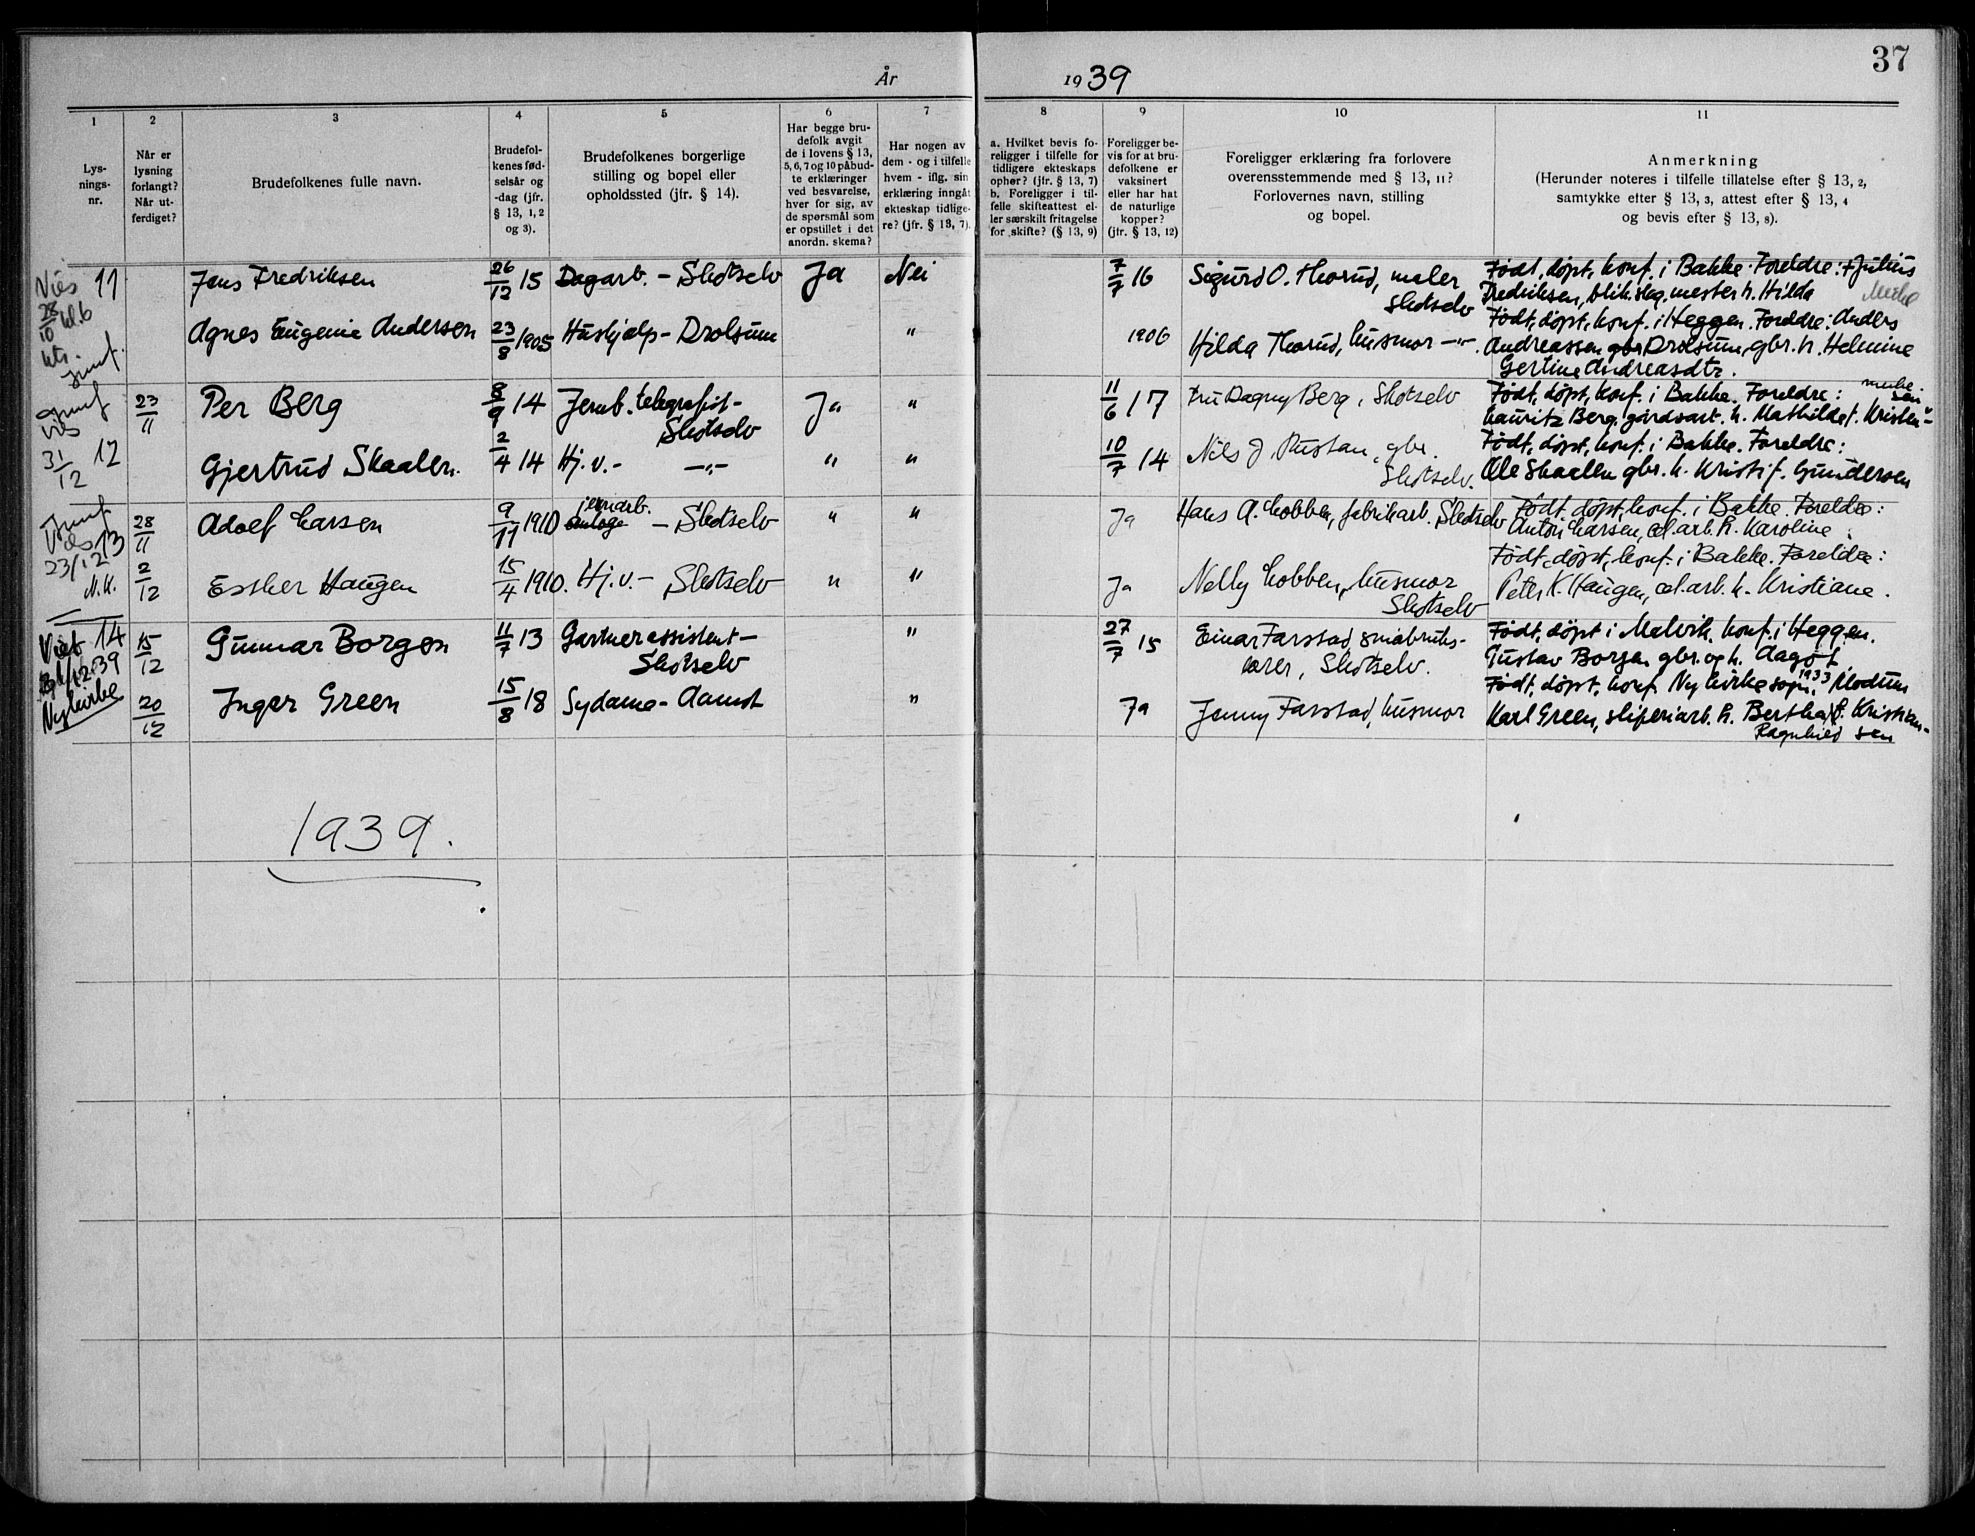 37
År 1939
1 2 3 4 5 6 7 8 9 10 11
Lys-
nings-
nr.
Når er
lysning
forlangt?
Når ut-
ferdiget?
Brudefolkenes fulle navn.
Brudefol-
kenes fød-
selsår og
-dag (jfr.
§ 13, 1, 2
og 3).
Brudefolkenes borgerlige
stilling og bopel eller
opholdssted (jfr. § 14).
Har begge bru-
defolk avgit
de i lovens § 13,
5, 6, 7 og 10 påbud-
te erklæringer
ved besvarelse,
hver for sig, av
de spørsmål som
er opstillet i det
anordn. skema?
Har nogen av
dem - og i tilfelle
hvem - iflg. sin
erklæring inngåt
ekteskap tidlige-
re? (jfr. § 13, 7).
a. Hvilket bevis fo-
religger i tilfelle for
tidligere ekteskaps
ophør? (jfr. § 13, 7)
b. Foreligger i til-
felle skifteattest el-
ler særskilt fritagelse
for skifte? (§ 13, 9)
Foreligger be-
vis for at bru-
defolkene er
vaksinert
eller har hat
de naturlige
kopper?
(jfr. § 13, 12)
Foreligger erklæring fra forlovere
overensstemmende med § 13, 11?
Forlovernes navn, stilling
og bopel.
Anmerkning
(Herunder noteres i tilfelle tillatelse efter § 13, 2,
samtykke efter § 13, 3, attest efter § 13, 4
og bevis efter § 13, 8).
Vies 11
28/10 kl. 6
Jens Fredriksen 26/12 15 Dagarb. - Skotselv Ja Nei 7/7 16 Sigurd O. Thorud, maler
Skotselv
Født, døpt, konf. i Bakke. Foreldre: Julius
Fredriksen, blik.slag.mester h. Hilda
Agnes Eugenie Andersen 23/8 1905 Hushjælp - Drolsum " 1906 Hilda Thorud, husmor -"-.
Født, døpt, konf. i Heggen. Foreldre: Anders
Andreassen gbr Drolsum, gbr. h. Helmine
Gertine Andreasdtr.
vies
31/12 12
23/11 Per Berg 8/9 14 Jernb. telegrafist -
Skotselv
Ja " 11/6 17 Fru Dagny Berg, Skotselv
Født, døpt, konf. i Bakke. Foreldre:
Lauritz Berg, gårdsarb. h. Mathilde f. Kristen-
sen
Gjertrud Skaalen. 2/4 14 Hj.v. - -"- " " 10/7 14 Nils J. Rustan, gbr.
Skotselv.
Født, døpt, konf. i Bakke. Foreldre:
Ole Skaalen gbr. h. Kristi f. Gundersen
Vies 13
23/12
N.K.
28/11 Adolf Larsen 9/11 1910 jernarb. - Skotselv " " Ja Hans A. Lobben, fabrikarb. Skotselv
Født, døpt, konf. i Bakke. Foreldre:
Anton Larsen, cel.arb. h. Karoline
2/12 Esther Haugen 15/4 1910. Hj.v. - Skotselv " " Ja Nelly Lobben, husmor
Skotselv
Født, døpt, konf. i Bakke. Foreldre:
Peter K. Haugen, cel.arb. h. Kristiane.
Viet 14
12-39
Nykirke
15/12 Gunnar Borgen 11/7 13 Gartnerassistent -
Skotselv
" 27/7 15 Einar Farstad, småbruks-
lærer, Skotselv.
Født, døpt i Malvik, konf. i Heggen.
Gustav Borgen gbr. og h. Aagot
20/12 Inger Green 15/8 18 Sydame - Aamot " Ja Jenny Farstad, husmor
Født, døpt, konf. Nykirke sogn, 1933 Modum
Karl Green, sliperiarb. h. Bertha f. Kristian-
Ragnhild sen
1939.